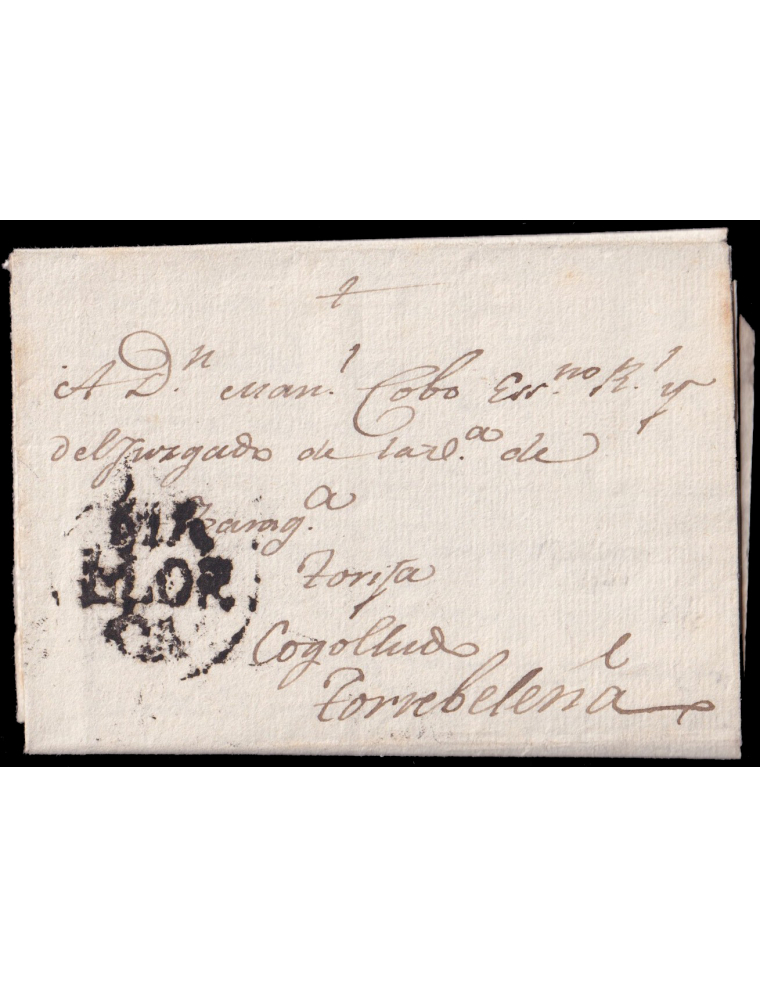 +
A D.n Man.l Cobo Ess.no R.l y
del Juzgado de la de
Zarag.a
Torija
Cogolludo
Torrebeleña
MA
LLOR
CA